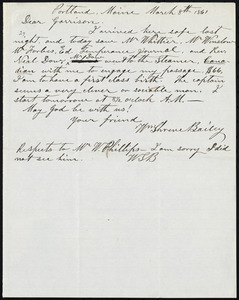 Portland, Maine March 8th 1861
Dear Garrison.
I arrived here safe last
night and today saw Mr Whittier, Mr Winslow
Mr Forbes, Ed. Temperance Journal, and Hon
Neil Dow, went to the Steamer, Cana-
dian with me to engage my passage $66.
I am to have a first class birth. The captain
seems a very clever or sociable man. I
start tomorrow at 8½ o'clock A.M.—
May God be with us!
Your friend
Wm Shreve Bailey
Respects to Mr W Phillips—I am sorry I did
not see him. WSB